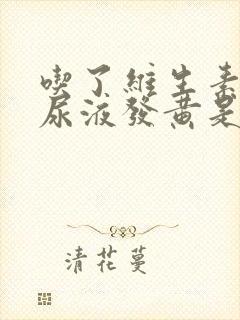 喫了維生素
尿液發黃是
清花蔓